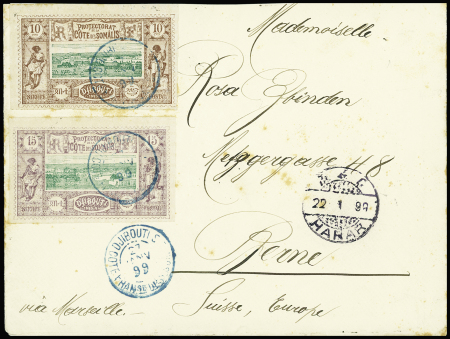 10 PROTECTORAT 10
CÔTE DES SOMALIS
R F
DJIBOUTI
15 PROTECTORAT 15
CÔTE DES SOMALIS
R F
DJIBOUTI
Mademoiselle
Rosa Joinden
Metzgergasse 48
22 1 99
HARAR
DJIBOUTI
99
Berne
via Marseille.
Suisse, Europe